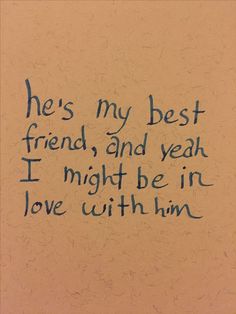 he's my best
friend, and yeah
I might be in
love with him